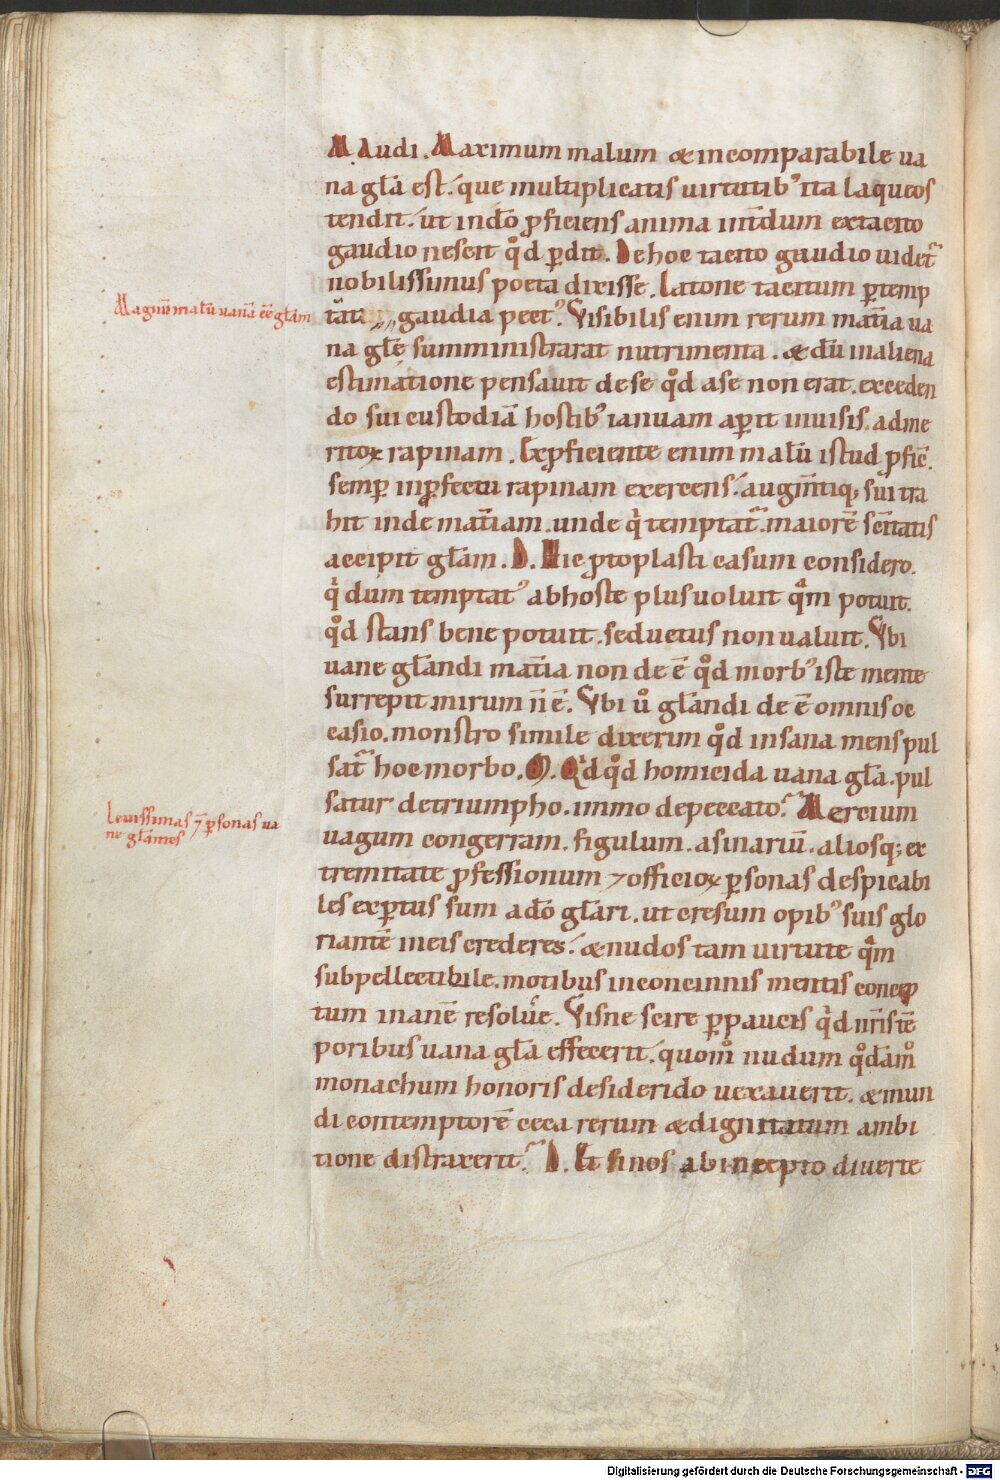 M. Audi. Maximum malum & incomparabile ua
na gła est. que multiplicatis uirtutibꝰ ita laqueos
tendit. ut indo ꝓficiens anima int̄dum extacito
gaudio nescit qd̊ ꝑdit. De hoc tacito gaudio uidet᷑
nobilissimus poeta dixisse. Latone tacitum ꝑtemp
Magnū malū uanā eē głam
tāt gaudia pectꝰ. Visibilis enim rerum mat̄ia ua
na głe sumministrarat nutrimenta. & dū inaliena
estimatione pensauit dese qd̊ ase non erat. exceden
do sui custodiā hostibꝰ ianuam aꝑit inuisis. adme
ritoꝝ rapinam. Exꝓficiente enim malū istud ꝓficīt.
semꝑ inꝓfectu rapinam exercens. augm̄tiqꝫ sui tra
hit inde mat̄iam. unde qͥ temptat᷑. maiorē sc̄itatis
accipit głam. D. Hic ꝓtoplasti casum considero.
qͥ dum temptatꝰ abhoste plus uoluit qᵃm potuit.
qd̊ stans bene potuit. seductus non ualuit. Vbi
uane głandi mat̄ia non de ē qd̊ morbꝰ iste mente
surrepit mirum n̄ ē. Vbi ů głandi de ē omnis oc
casio. monstro simile dixerim qd̊ insana mens pul
sat᷑ hoc morbo. M. Qͥd qd̊ homicida uana gła. pul
satur detriumpho. immo depeccato. Mercium
Leuissimas ⁊ ꝑsonas ua
ne głantes
uagum congerram. figulum. asinariū. aliosqꝫ ex
tremitate ꝓfessionum ⁊ officioꝝ ꝑsonas despicabi
les exꝑtus sum ado głari. ut cresum opibꝰ suis glo
riantē in eis crederes. & nudos tam uirtute qᵃm
subpellectibile. motibus inconcinnis mentis concep
tum inanē resolue. Visne scire ꝑpaucis qͥd nr̄is tē
poribus uana gła effecerit. quom̊ nudum qd̊am̊
monachum honoris desiderido uexauerit. & mun
di contemptorē ceca rerum & dignitatum ambi
tione distraxerit. D. Et si nos abincepto diuerte
Digitalisierung gefördert durch die Deutsche Forschungsgemeinschaft - DFG